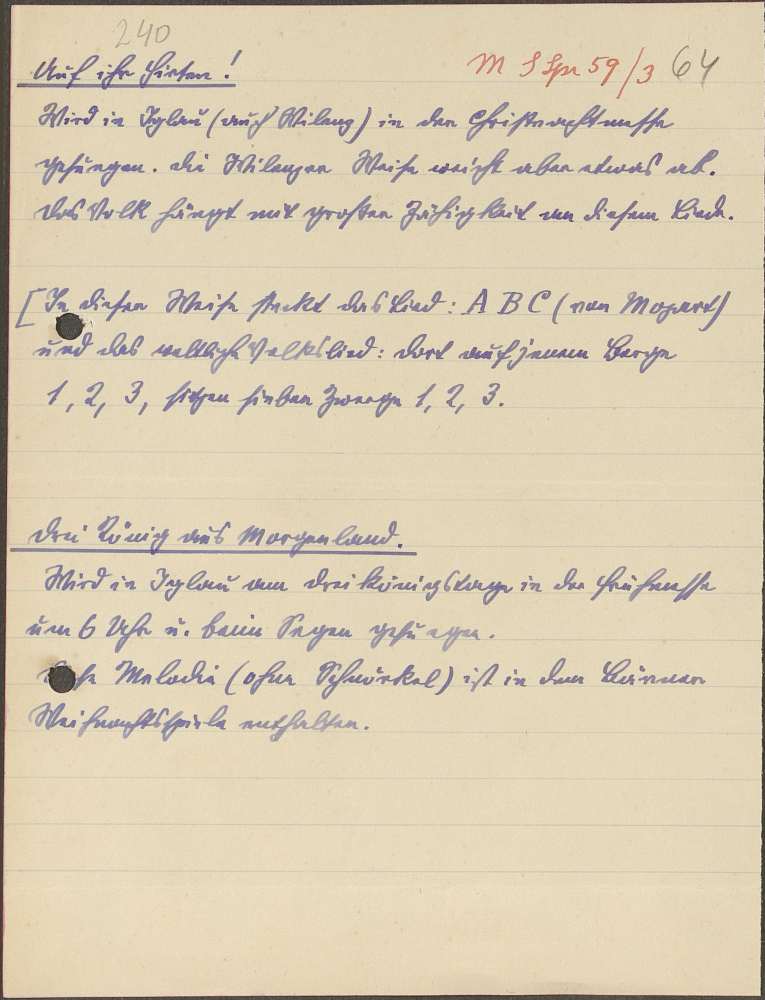 240
M S Spr 59/3 64
Auf ihr Hirten!
Wird in Iglau (auch Wilenz) in der Christnachtmesse
gesungen. Die Wilenzer Weise weicht aber etwas ab.
Das Volk hängt mit großer Zähigkeit an diesem Liede.
[In dieser Weise steckt das Lied: A B C (von Mozart)
und das weltliche Volkslied: Dort auf jenem Berge
1, 2, 3, sitzen sieben Zwerge 1, 2, 3.
Drei König aus Morgenland.
Wird in Iglau am Dreikönigstage in der Frühmesse
um 6 Uhr u. beim Segen gesungen.
Melodie (ohne Schnörkel) ist in dem
Weihnachtsspiele enthalten.